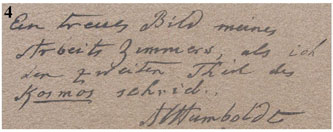 4
Ein treues Bild meines
Arbeits Zimmers, als ich
den zweiten Theil des
Kosmos schrieb..
AlHumboldt